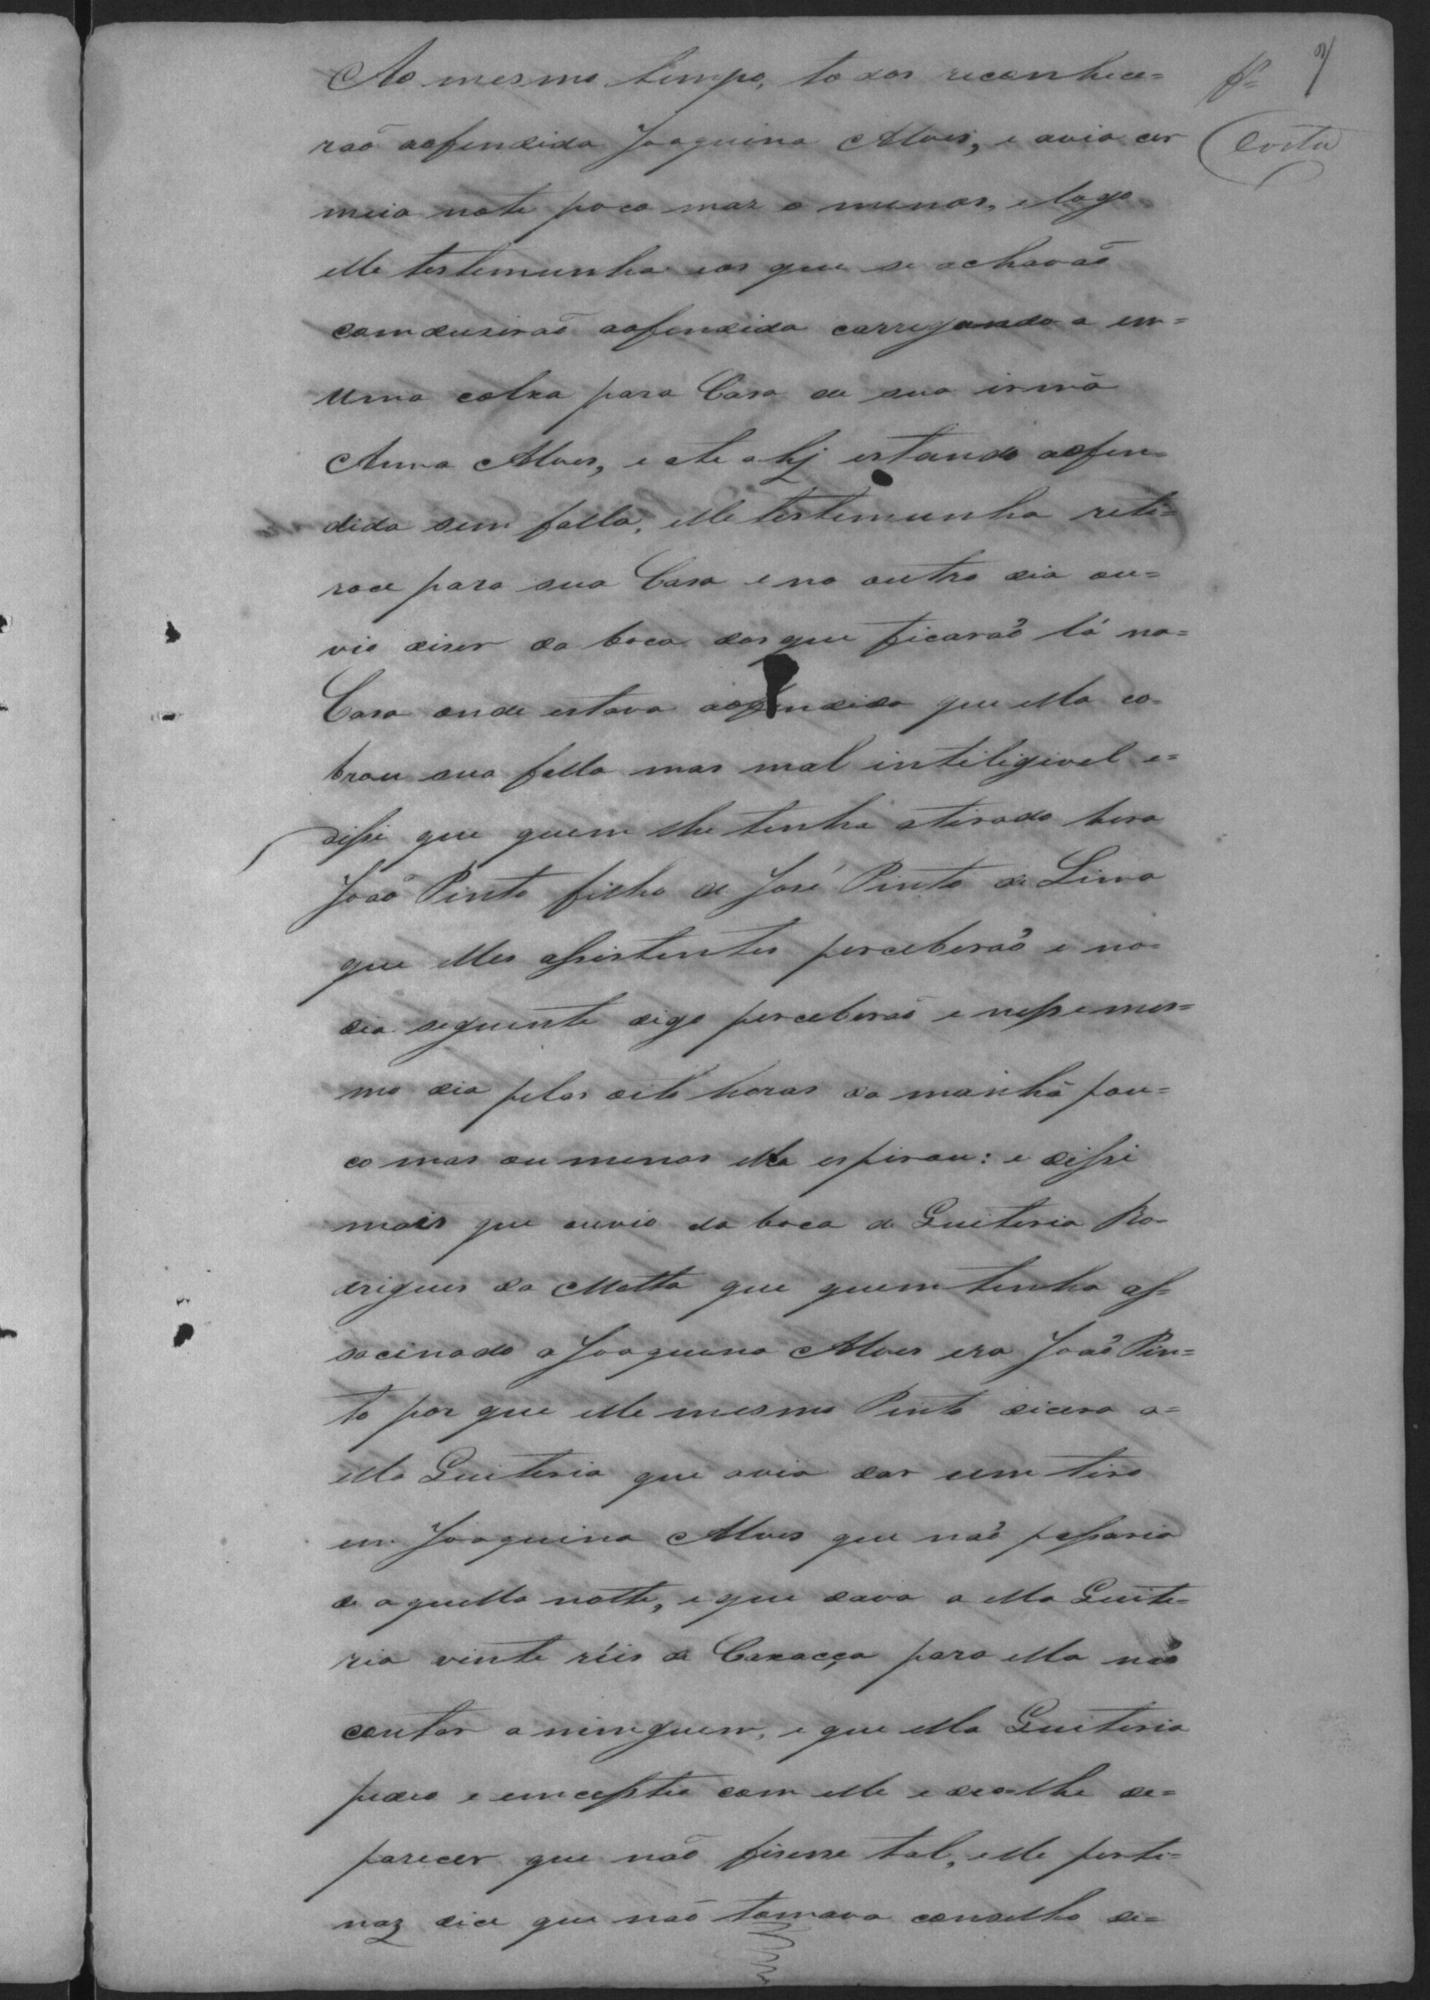 fl= 7
Costa
Ao mesmo tempo, todos reconhece=
raõ aofendida Joaquina Alves, e avia cer
meia note poco mas o menos, e logo
elle testemunha eos que se achavaõ
comdusiraõ aofendida carregando a em=
uma colxa para Casa de sua irmã
Anna Alves, e ate ahj estando aofen=
dida sem falla, elle testemunha reti=
rouce para sua Casa e no outro dia ou=
vio diser da boca dos que ficaraõ lá na=
Casa onde estava aofendida que ella co=
brou sua falla mas mal inteligivel e=
disse que quem lhe tinha atirado hera
Joaõ Pinto filho de José Pinto de Lima
que elles assistentes perceberaõ e no=
dia seguente digo perceberaõ e nesse mes=
mo dia pelas oito horas da manhã pou=
co mas ou menos ella espirou: e disse
mais que ouvio da boca de Guiteria Ro=
drigues da Motta que quem tinha as=
sacinado a Joaquina Alves era Joaõ Pin=
to por que elle mesmo Pinto dicera a=
ella Guiteria que avia dar um tiro
em Joaquina Alves que naõ passaria
de aquella notte, e que dava a ella Guite=
ria vinte réis de Caxacça para ella naõ
contar a nimguem, e que ella Guiteria
pedio e emcestio com elle e deo-lhe de=
parecer que naõ fisesse tal, elle perti=
naz dice que naõ tomava conselho de=